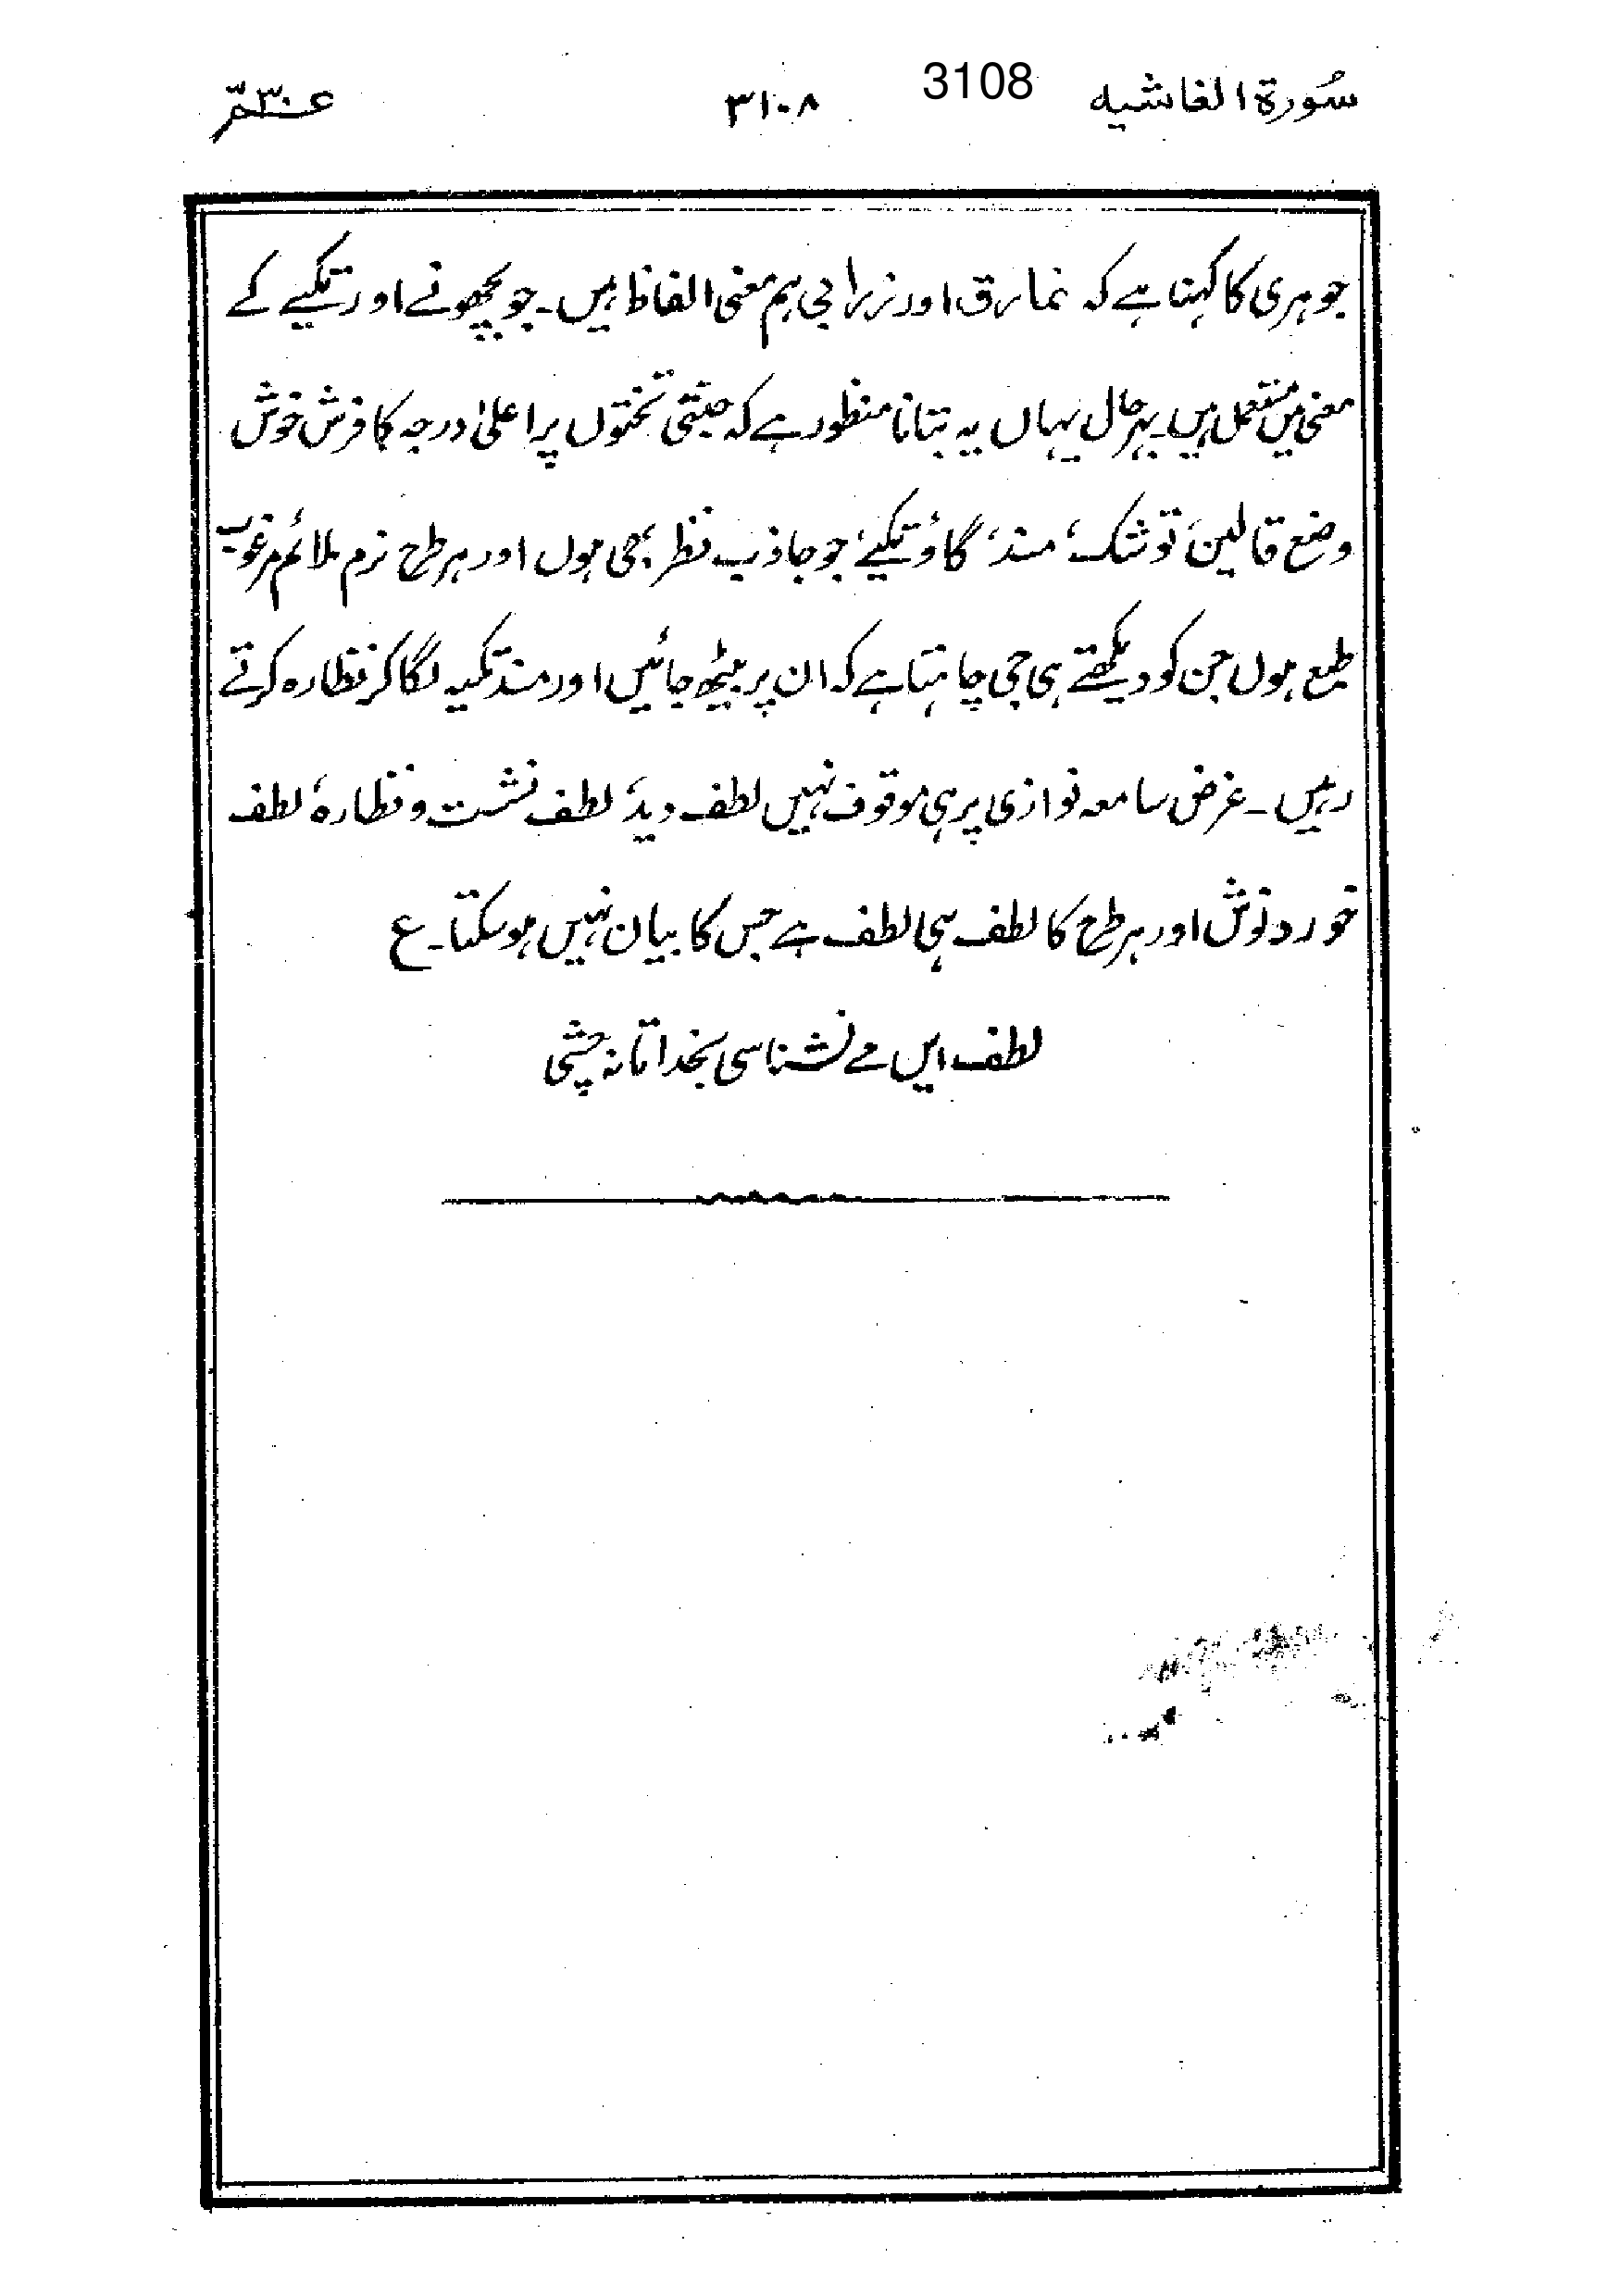 سُورۃ الغاشیہ 3108 ۳۱۰۸ عـــمّ۳۰
جوہری کا کہنا ہے کہ نمارق اور زرابی ہم معنی الفاظ ہیں۔ جو بچھونے اور تکیے کے
معنی میں مستعمل ہیں۔ بہرحال یہاں یہ بتانا منظور ہے کہ جنتی تختوں پر اعلیٰ درجہ کا فرش خوش
وضع قالین، توشک، مسند، گاؤ تکیے، جو جاذب نظر بھی ہوں اور ہر طرح نرم ملائم مرغوب
طبع ہوں جن کو دیکھتے ہی جی چاہتا ہے کہ ان پر بیٹھ جائیں اور مسند تکیہ لگا کر نظارہ کرتے
رہیں۔ غرض سامعہ نوازی پر ہی موقوف نہیں لطف دید، لطف نشست و نظارہ، لطف
خورد نوش اور ہر طرح کا لطف ہی لطف ہے جس کا بیان نہیں ہو سکتا۔ ع
لطف ایں مے نشناسی بخدا تا نہ چشی